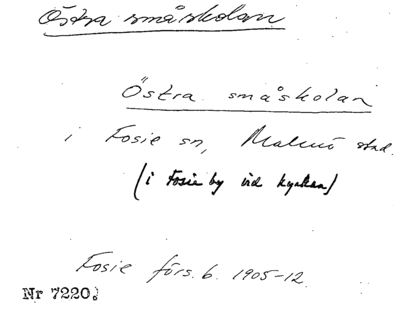 Östra småskolan
Östra småskolan
i Fosie sn, Malmö stad.
(i Fosie by vid kyrkan)
Fosie förs. b. 1905-12
Nr 7220.